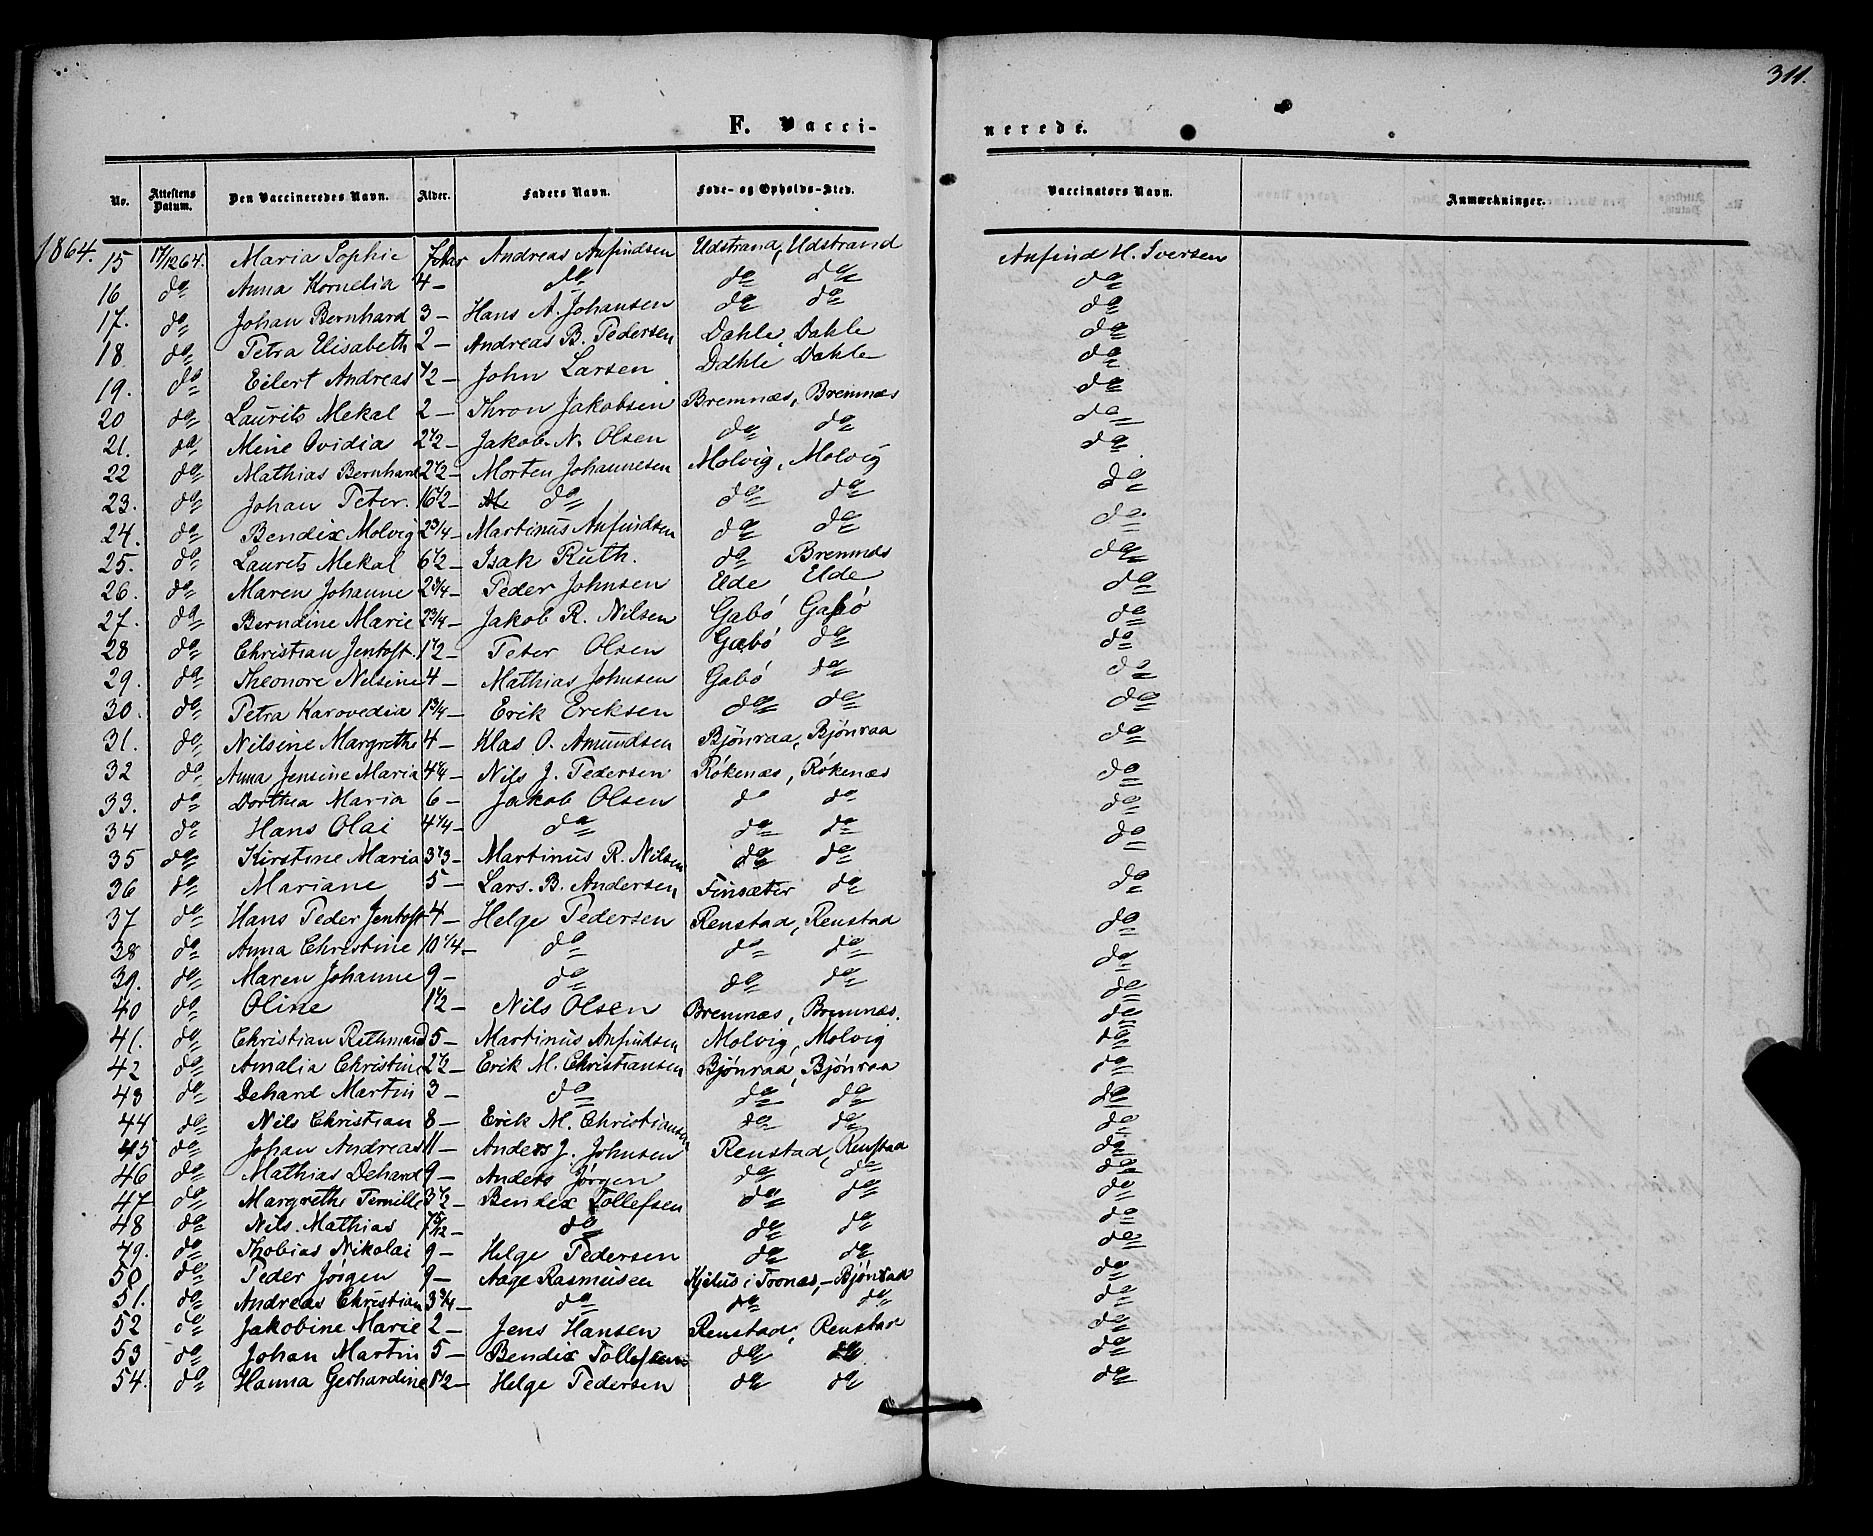 311.
F. Vaccinerede.
No. | Attestens Datum. | Den Vaccineredes Navn. | Alder. | Faders Navn. | Føde- og Opholds-Sted. | Vaccinators Navn. | Anmærkninger.
1864. 15 | 17/12 64. | Maria Sophie | Andreas Anfindsen | Udstrand, Udstrand | Anfind H. Iversen
16 | do | Anna Kornelia | 4 – | do | do do | do
17. | do | Johan Bernhard | 3 – | Hans A. Johansen | do do | do
18 | do | Petra Elisabeth | 2 – | Andreas B. Pedersen | Dahle, Dahle | do
19. | do | Eilert Andreas | 1/2 – | John Larsen | Dahle Dahle | do
20 | do | Laurits Mekal | 2 – | Thron Jakobsen | Bremnæs, Bremnæs | do
21. | do | Mine Ovidia | 2 1/2 – | Jakob N. Olsen | do do | do
22 | do | Mathias Bernhard | 2 1/2 – | Morten Johannesen | Molvig, Molvig | do
23. | do | Johan Peter. | 6 1/2 – | do | do do | do
24. | do | Bendix Molvig | 2 3/4 – | Martinus Anfindsen | do do | do
25. | do | Laurits Mekal | 6 1/2 – | Isak Ruth. | do Bremnæs | do
26. | do | Maren Johanne | 2 3/4 – | Peder Johnsen | Elde Elde | do
27. | do | Berndine Marie | 2 3/4 – | Jakob R. Nilsen | Gabó Gabó | do
28 | do | Christian Jentoft. | 1 1/2 – | Peter Olsen | Gabó do | do
29. | do | Theonore Nelsine | 4 – | Mathias Johnsen | Gabó do | do
30. | do | Petra Karovedia | 1 3/4 – | Erik Eriksen | do do | do
31. | do | Nilsine Margrethe | 4 – | Klas O. Amundsen | Bjónraa, Bjónraa | do
32 | do | Anna Jensine Maria | 4 1/4 – | Nils J. Pedersen | Rókenæs, Rókenæs | do
33. | do | Dorthea Maria | 6 – | Jakob Olsen | do do | do
34 | do | Hans Olai | 4 1/4 – | do | do do | do
35 | do | Kirstine Maria | 3 1/3 – | Martinus R. Nilsen | do do | do
36 | do | Mariane | 5 – | Lars. B. Andersen | Finsæter do | do
37 | do | Hans Peder Jentoft | 4 – | Helge Pedersen | Renstad, Renstad | do
38 | do | Anna Christine | 10 1/4 – | do | do do | do
39. | do | Maren Johanne | 9 – | do | do do | do
40 | do | Oline | 1 1/2 – | Nils Olsen | Bremnæs, Bremnæs. | do
41. | do | Christian | 5 – | Martinus Anfindsen | Molvig, Molvig | do
42 | do | Amalia Christine | 2 1/2 – | Erik M. Christiansen | Bjónraa, Bjónraa | do
43 | do | Dehard Martin | 3 – | do | do do | do
44 | do | Nils Christian | 8 – | Erik M. Christiansen | do do | do
45 | do | Johan Andreas | 11 – | Anders J. Johnsen | Renstad, Renstad | do
46 | do | Mathias Dehard | 9 – | Anders Jørgen | do do | do
47 | do | Margrethe Pernille | 3 1/2 – | Bendix Tollefsen | do do | do
48 | do | Nils. Mathias | do | do do | do
49. | do | Thobias Nikolai | 9 – | Helge Pedersen | do do | do
50 | do | Peder Jórgen | 9 – | Aage Rasmussen | i – Bjónraa | do
51. | do | Andreas Christian | 3 3/4 – | do | do do | do
52 | do | Jakobine Marie | 2 – | Jens Hansen | Renstad, Renstad | do
53 | do | Johan Martin | 5 – | Bendix Tollefsen | do do | do
54. | do | Hanna Gerhardine | 1/2 – | Helge Pedersen | do do | do